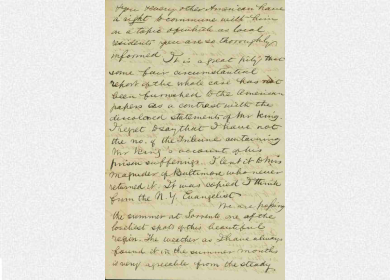 you & every other American have
a right to commune with them
on a topic of which as local
residents you are so thoroughly
informed. It is a great pity that
some fair circumstantial
report of the whole case has not
been furnished to the American
papers as a contrast with the
discolored statements of Mr King.
I regret to say that I have not
the no. of the Tribune containing
Mr King's account of his
prison sufferings. I lent it to Mrs
Magruder of Baltimore who never
returned it. It was copied I think
from the N. Y. Evangelist.
We are passing
the summer at Sorrento one of the
loveliest spots of this beautiful
region. The weather as I have always
found it in the summer months
is very agreeable from the steady